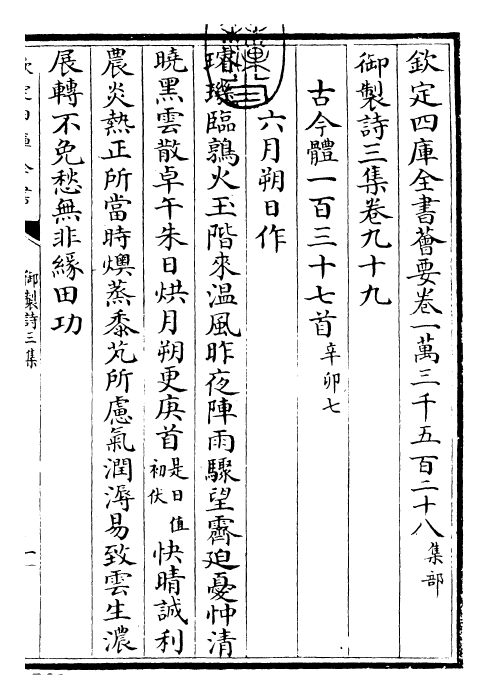 欽定四庫全書薈要卷一萬三千五百二十八集部
御製詩三集卷九十九
古今體一百三十七首辛卯七
六月朔日作
璿璣臨鶉火玉階來溫風昨夜陣雨驟望霽迫憂忡清
曉黑雲散卓午朱日烘月朔更庚首是日值初伏快晴誠利
農炎熱正所當時燠蒸黍芃所慮氣潤溽易致雲生濃
展轉不免愁無非緣田功
御製詩三集
一